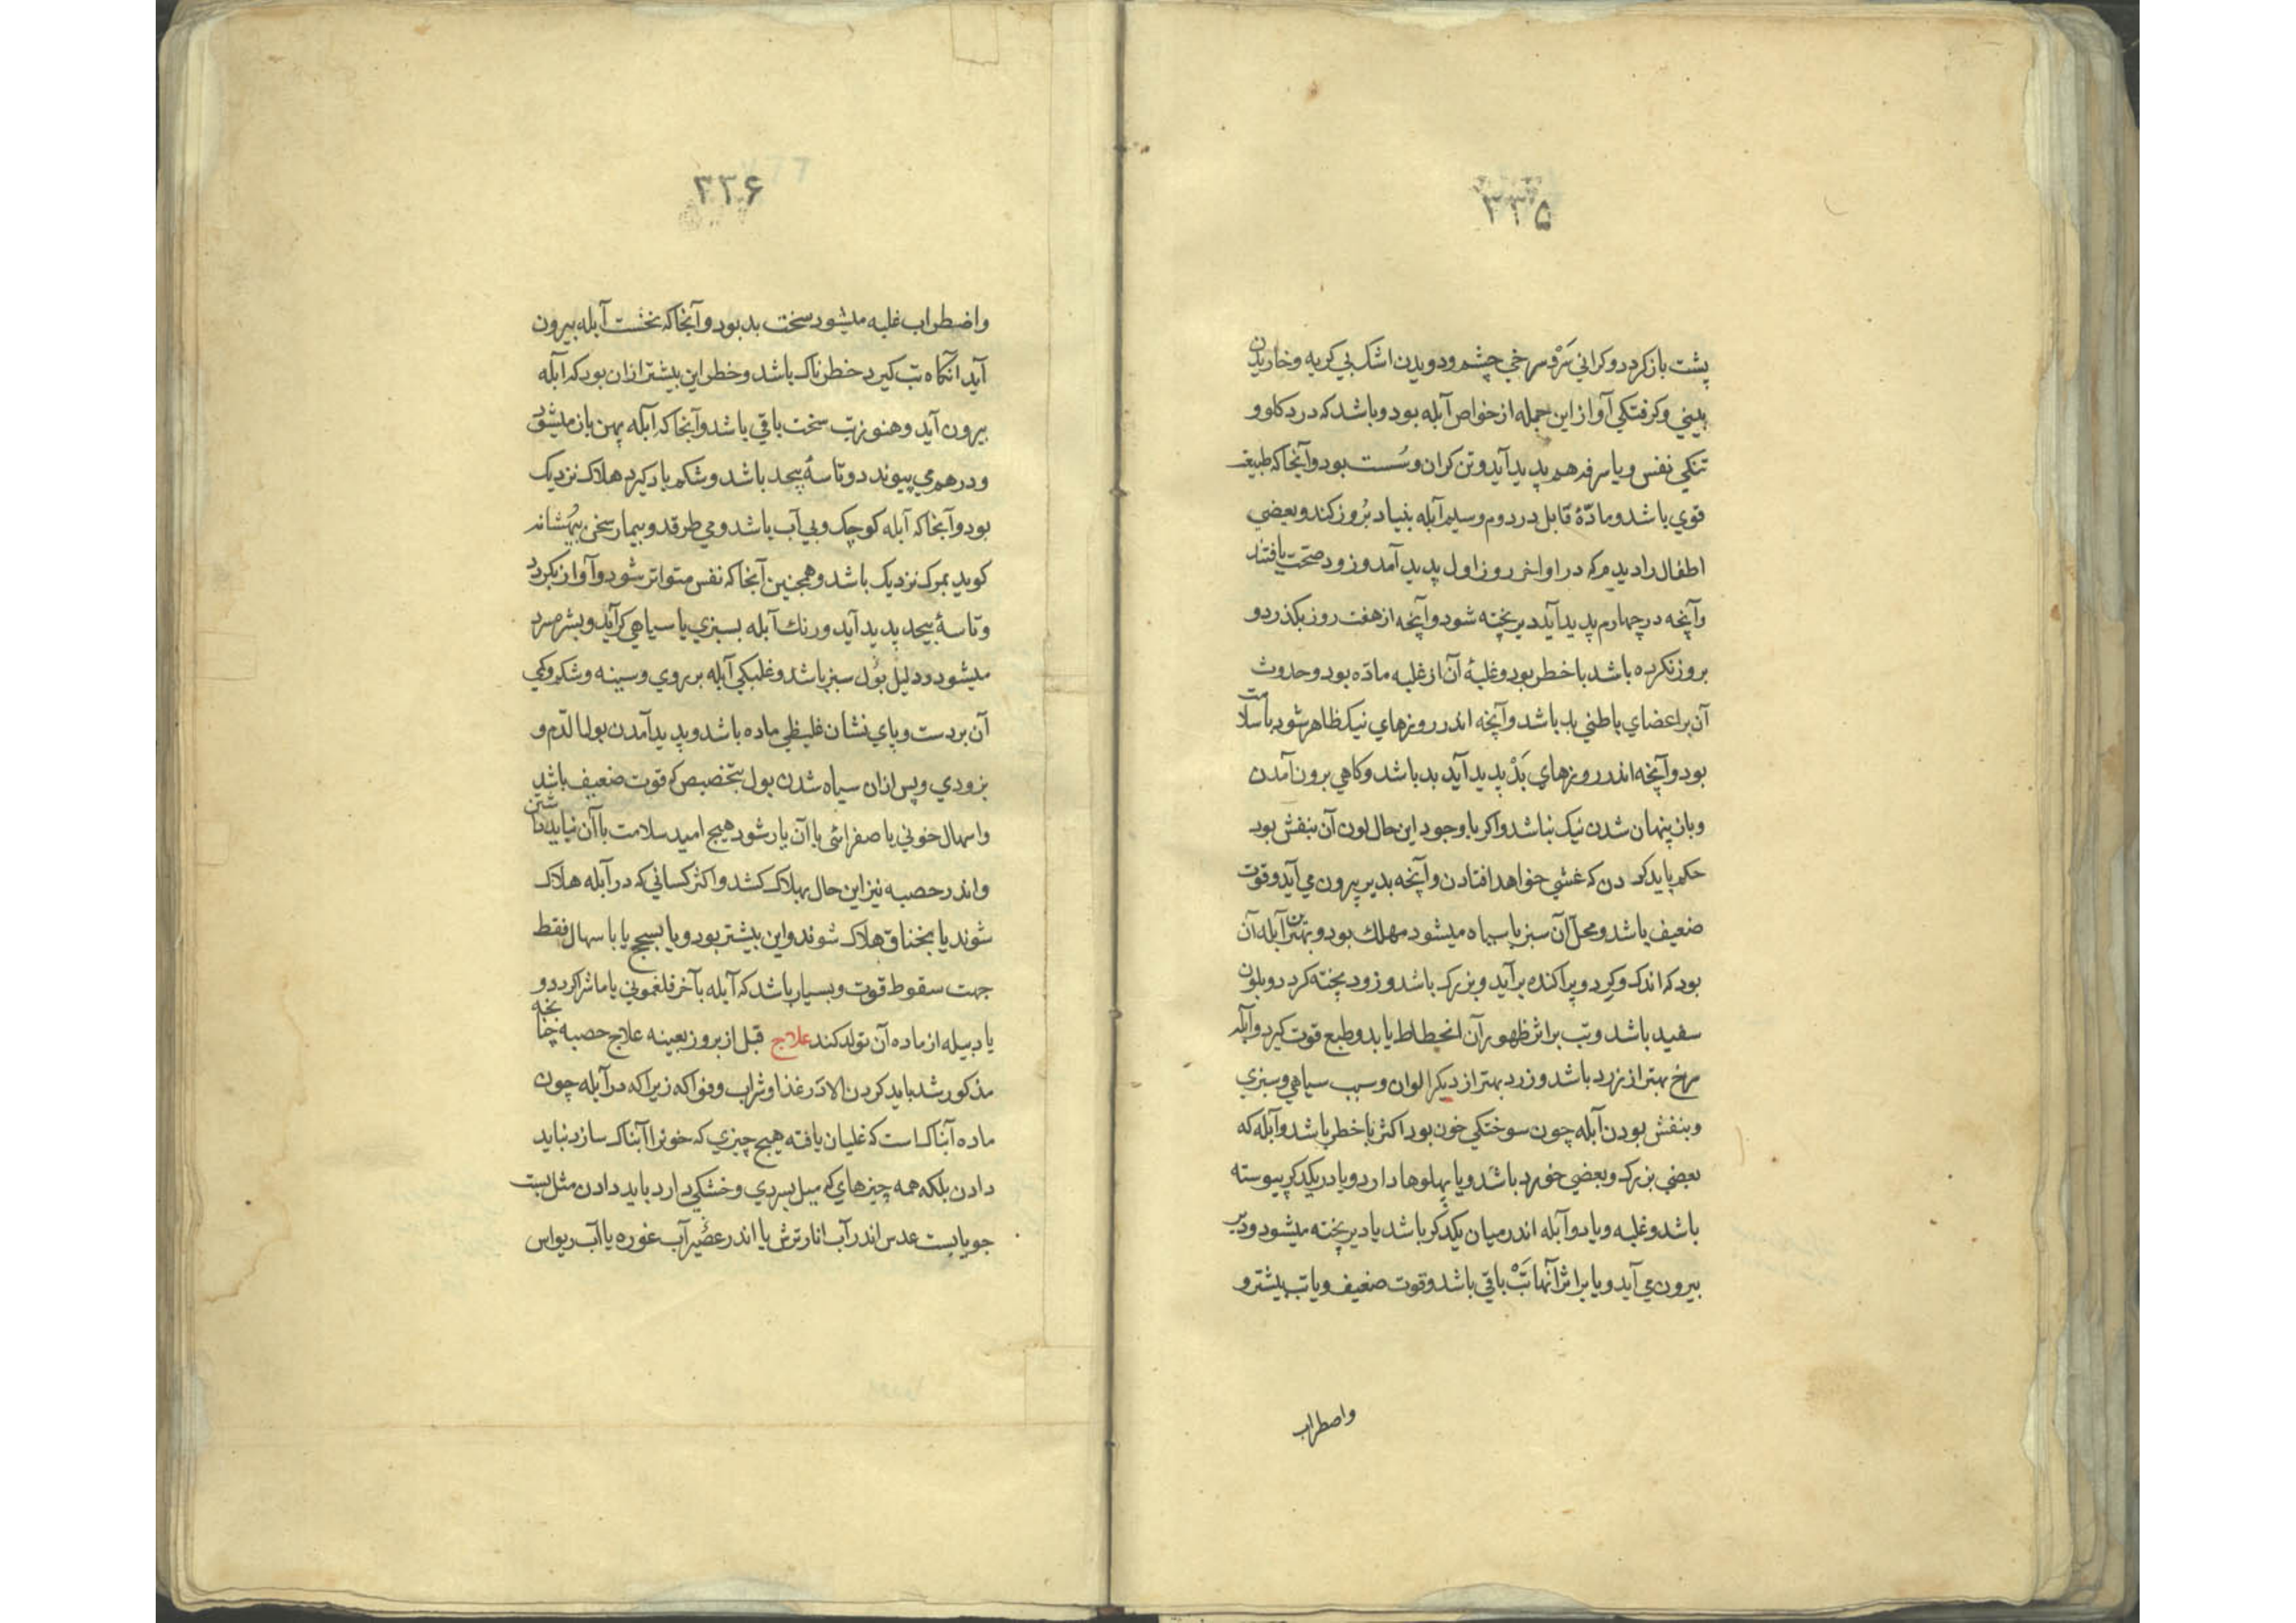 ۳۳۵
پشت باز کردد و کرانی سَرْ و سرخی چشم و دویدن اشک بی کریه و خاریدن
بینی و کرفتکی آواز این جمله از خواص آبله بود و باشد که درد کلو و
تنکی نفس و یا سرفه هم پدید آید و تن کران و سُست بود و آنجا که طبیعه
قوی باشد و مادّهٔ قابل در دوم و سیم آبله بنیاد بُروز کند و بعضی
اطفال را دیدم که در اواخر روز اول پدید آمد و زود صحت یافتند
وآنچه در چهارم پدید آید دیر پخته شود و آنچه از هفت روز بکذرد و
بروز نکرده باشد با خطر بود و غلبهٔ آن از غلبه مادّه بود و حدوث
آن بر اعضای باطنی بد باشد و آنچه اندر روزهای نیک ظاهر شود با سلامت
بود و آنچه اندر روزهای بَدْ پدید آید بد باشد و کاهی برون آمدن
و باز پنهان شدن نیک نباشد و اکر با وجود این حال لون آن بنفش بود
حکم باید کردن که غشی خواهد افتادن و آنچه بدیر بیرون می آید و قوت
ضعیف باشد و محل آن سبز یا سیاه میشود مهلک بود و بهترین آبله آن
بود که اندک و کرد و پراکنده برآید و بزرک باشد و زود پخته کردد و بلون
سفید باشد و تب بر اثر ظهور آن انحطاط یابد و طبع قوت کیرد و آبله
سرخ بهتر از زرد باشد و زرد بهتر از دیکر الوان و سبب سیاهی و سبزی
و بنفش بودن آبله چون سوختکی خون بود اکثر با خطر باشد و آبله که
بعضی بزرک و بعضی خورد باشد و یا پهلوها دارد و یا در یکدکر پیوسته
باشد و غلبه و یا دو آبله اندر میان یکدکر باشد یا دیر پخته میشود و دیر
بیرون می آید و یا بر اثر آنها تَبْ باقی باشد و قوت ضعیف و یا تب بیشتر و
واضطراب
۳۳۶
واضطراب غلبه میشود سخت بد بود و آنجا که نخست آبله بیرون
آید آنکاه تب کیرد خطرناک باشد و خطر این بیشتر از آن بود که آبله
بیرون آید و هنوز تب سخت باقی باشد و آنجا که آبله پهن باز میشود
و در هم می پیوندد و تاسهٔ بیحد باشد و شکم باد کیرد هلاک نزدیک
بود و آنجا که آبله کوچک و بی آب باشد و می طرقد و بیمار سخن بیهُشانه
کوید بمرک نزدیک باشد و همچنین آنجا که نفس متواتر شود و آواز بکردد
و تاسهٔ بیحد پدید آید و رنک آبله بسبزی یا سیاهی کراید و بشره سرد
میشود و دلیل بَول سبز باشد و غلبکی آبله بر روی و سینه و شکم و کمی
آن بر دست و پای نشان غلیظی ماده باشد و پدید آمدن بول الدّم و
بزودی و پس از آن سیاه شدن بول بتخصیص که قوت ضعیف باشد
و اسهال خونی یا صفرائی با آن یار شود هیچ امید سلامت با آن نباید داشتن
و اندر حصبه نیز این حال بهلاک کشد و اکثر کسانی که در آبله هلاک
شوند یا بخناق هلاک شوند و این بیشتر بود و یا بسحج یا با سهال فقط
جهت سقوط قوت و بسیار باشد که آبله بآخر فلغمونی یا ماشرا کردد و
یا دبیله از ماده آن تولد کند علاج قبل از بروز بعینه علاج حصبه چنانچه
مذکور شد باید کردن الا در غذا و شراب و فواکه زیرا که در آبله چون
ماده آبناک است که غلیان یافته هیچ چیزی که خونرا آبناک سازد نباید
دادن بلکه همه چیزهای که میل بسردی و خشکی دارد باید دادن مثل پست
جو یا پست عدس اندر آب انار ترش یا اندر عصیر آب غوره یا آب ریواس